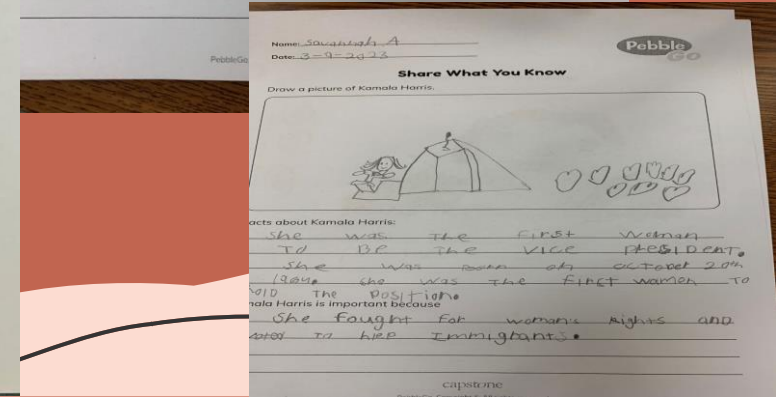 PebbleGo
Name: Savannah A
Date: 3-9-2023
Pebble
Go
Share What You Know
Draw a picture of Kamala Harris.
acts about Kamala Harris:
She was The First Woman
To BE The VICE PResIDent.
She was born on october 20th
she was The First woman To
The Position.
ala Harris is important because
She Fought For woman's Rights and
to help Immigrants.
capstone